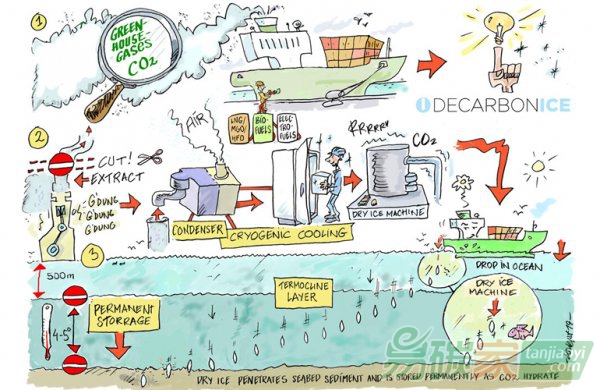 1
GREEN-
HOUSE-
GASES
CO2
DECARBONICE
LNG/
MGO/
HFO
BIO-
FUELS
ELEC-
TRO-
FUELS
2
CUT!
EXTRACT
G'DUNG
G'DUNG
G'DUNG
AIR
CONDENSER
CRYOGENIC COOLING
RRRRRR
CO2
DRY ICE MACHINE
DROP IN OCEAN
DRY ICE
MACHINE
3
500m
4-5°
PERMANENT
STORRAGE
TERMOCLINE
LAYER
DRY ICE PENETRATES SEABED SEDIMENT AND IS STORED PERMANENTLY AS CO2 HYDRATE
易碳家
tanjiaoyi